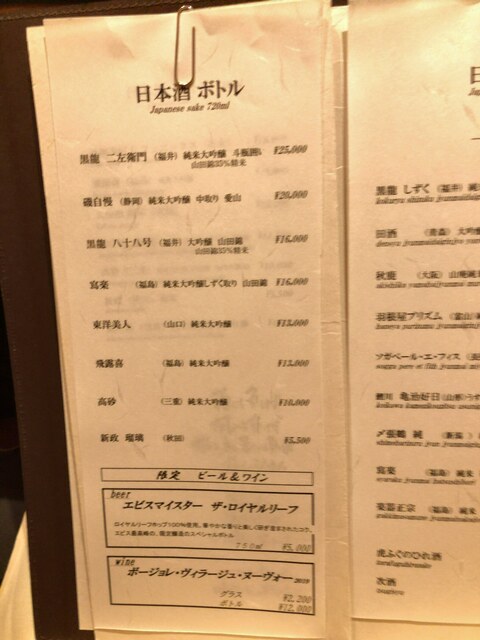 日本酒 ボトル
Japanese sake 720ml
黒龍 二左衛門 (福井) 純米大吟醸 斗瓶囲い ¥25,000
山田錦35%精米
磯自慢 (静岡) 純米大吟醸 中取り 愛山 ¥20,000
黒龍 八十八号 (福井) 大吟醸 山田錦 ¥16,000
山田錦35%精米
寫楽 (福島) 純米大吟醸しずく取り 山田錦 ¥16,000
東洋美人 (山口) 純米大吟醸 ¥13,000
飛露喜 (福島) 純米大吟醸 ¥13,000
高砂 (三重) 純米大吟醸 ¥10,000
新政 瑠璃 (秋田) ¥5,500
限定 ビール&ワイン
beer
エビスマイスター ザ・ロイヤルリーフ
ロイヤルリーフホップ100%使用。華やかな香りと美しく研ぎ澄まされたコク。
エビス最高峰の、限定醸造のスペシャルボトル
750ml ¥5,000
wine
ボージョレ・ヴィラージュ・ヌーヴォー 2019
グラス ¥2,200
ボトル ¥12,000
黒龍 しずく (福井) 純
田酒 (青森) 大吟
秋鹿 (大阪) 山廃純
羽根屋プリズム (富山)
ソガペール・エ・フィス
鯉川 亀治好日 (山形)
〆張鶴 純 (新潟)
寫楽 (福島) 純米
楽器正宗 (福島) 純米
虎ふぐのひれ酒
次酒